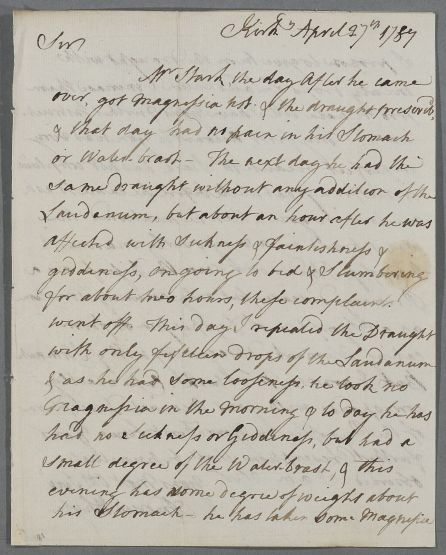 Kirkdy April 27th 1787
Sir
Mr Stark the day after he came
over, got Magnesia hot & the draught prescribd,
& that day had no pain in his Stomach
or Water brash - The next day he had the
Same draught without any addition of the
Laudanum, but about an hour after he was
affected with Sickness & faintishness &
giddiness, on going to bed & Slumbering
for about two hours, these complaints
went off. This day I repeated the Draught
with only fifteen drops of the Laudanum
& as he had Some looseness, he took no
Magnesia in the Morning & to day he has
had no Sickness or Giddiness, but had a
Small degree of the Water brash, & this
evening has some degree of weight about
his Stomach - he has taken Some Magnesia